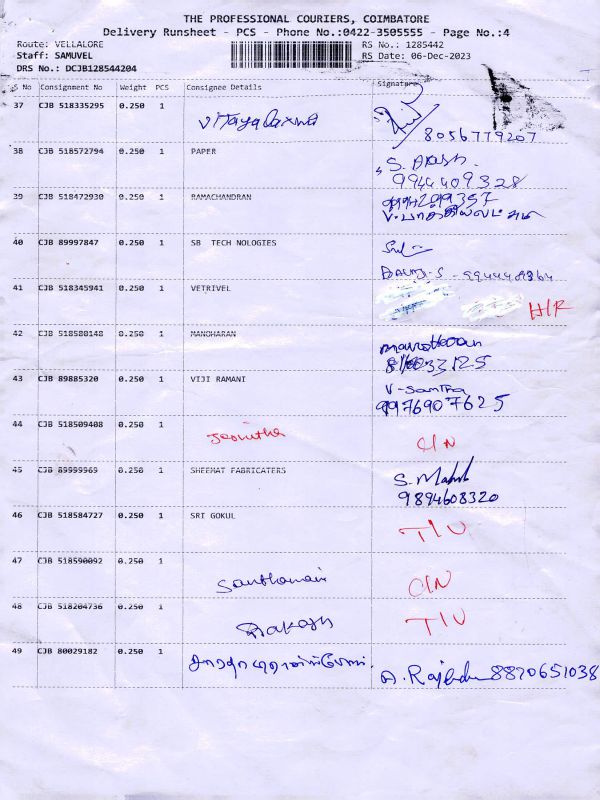 THE PROFESSIONAL COURIERS, COIMBATORE
Delivery Runsheet - PCS - Phone No.:0422-3505555 - Page No.:4
Route: VELLALORE RS No.: 1285442
Staff: SAMUVEL RS Date: 06-Dec-2023
DRS No.: DCJB128544204
S No Consignment No Weight PCS Consignee Details Signature
37 CJB 518335295 0.250 1 Vijayalaxmi
8056779207
38 CJB 518572794 0.250 1 PAPER S. Akash
9944409328
39 CJB 518472930 0.250 1 RAMACHANDRAN
40 CJB 89997847 0.250 1 SB TECH NOLOGIES
41 CJB 518345941 0.250 1 VETRIVEL H/R
42 CJB 518580148 0.250 1 MANOHARAN
43 CJB 89885320 0.250 1 VIJI RAMANI
9976907625
44 CJB 518509408 0.250 1 C/N
45 CJB 89999969 0.250 1 SHEEMAT FABRICATERS S.
9894608320
46 CJB 518584727 0.250 1 SRI GOKUL T/U
47 CJB 518590092 0.250 1 C/N
48 CJB 518204736 0.250 1 Rakash T/U
49 CJB 80029182 0.250 1 8870651038